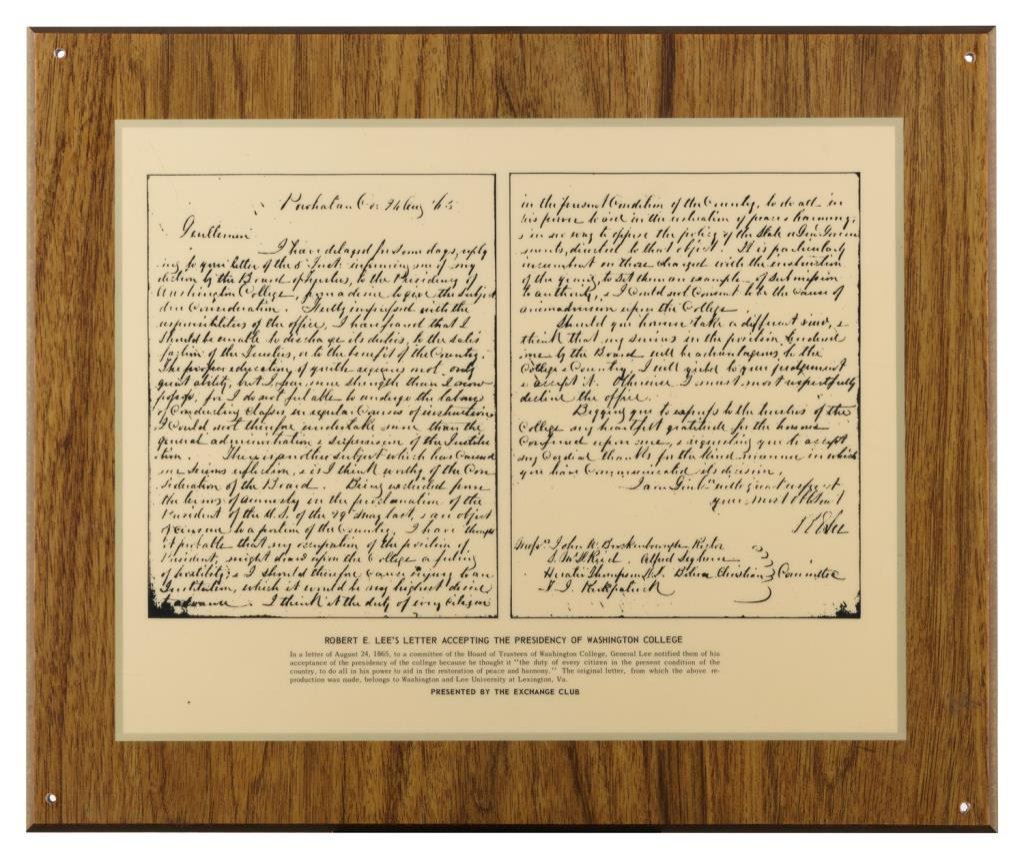 Powhatan Co. 24 Aug '65
Gentlemen
I have delayed for some days, reply
ing to your letter of the 5th Inst: informing me of my
election by the Board of Trustees, to the Presidency of
Washington College, from a desire to give the subject
due Consideration. Fully impressed with the
responsibilities of the office, I have feared that I
Should be unable to discharge its duties, to the satis
faction of the Trustees, or to the benefit of the Country.
The proper education of youth requires not only
great ability, but I fear more strength than I now
possess, for I do not feel able to undergo the labour
of Conducting Classes in regular Courses of instruction
I Could not therefore undertake more than the
general administration & supervision of the Institu
tion. There is another subject which has Caused
me serious reflection, & is I think worthy of the Con
sideration of the Board. Being excluded from
the terms of amnesty in the proclamation of the
President of the U.S. of the 29 May last, & an object
of censure to a portion of the Country, I have thought
it probable that my occupation of the position of
President, might draw upon the College a feeling
of hostility; & I should therefore Cause injury to an
Institution, which it would be my highest desire
to advance. I think it the duty of every Citizen
in the present Condition of the Country, to do all in
his power to aid in the restoration of peace & harmony,
& in no way to oppose the policy of the State or Genl Govern
ments, directed to that object. It is particularly
incumbent on those charged with the instruction
of the young, to set them an example of submission
to authority, & I Could not consent to be the Cause of
animadversion upon the College.
Should you however take a different view, &
think that my services in the position tendered
me by the Board will be advantageous to the
College & Country, I will yield to your judgement
& accept it. Otherwise I must most respectfully
decline the office.
Begging you to express to the trustees of the
College my heartfelt gratitude for the honour
Conferred upon me, & requesting you to accept
my Cordial thanks for the kind manner in which
you have Communicated its decision,
I am Gentn with great respect
your most obt Servt
R E Lee
Messrs. John W. Brockenbrough Rector
S. McD. Reid Alfred Leyburn
Horatio Thompson D.D. Bolivar Christian Committee
T. J. Kirkpatrick
ROBERT E. LEE'S LETTER ACCEPTING THE PRESIDENCY OF WASHINGTON COLLEGE
In a letter of August 24, 1865, to a committee of the Board of Trustees of Washington College, General Lee notified them of his
acceptance of the presidency of the college because he thought it "the duty of every citizen in the present condition of the
country, to do all in his power to aid in the restoration of peace and harmony." The original letter, from which the above re-
production was made, belongs to Washington and Lee University at Lexington, Va.
PRESENTED BY THE EXCHANGE CLUB